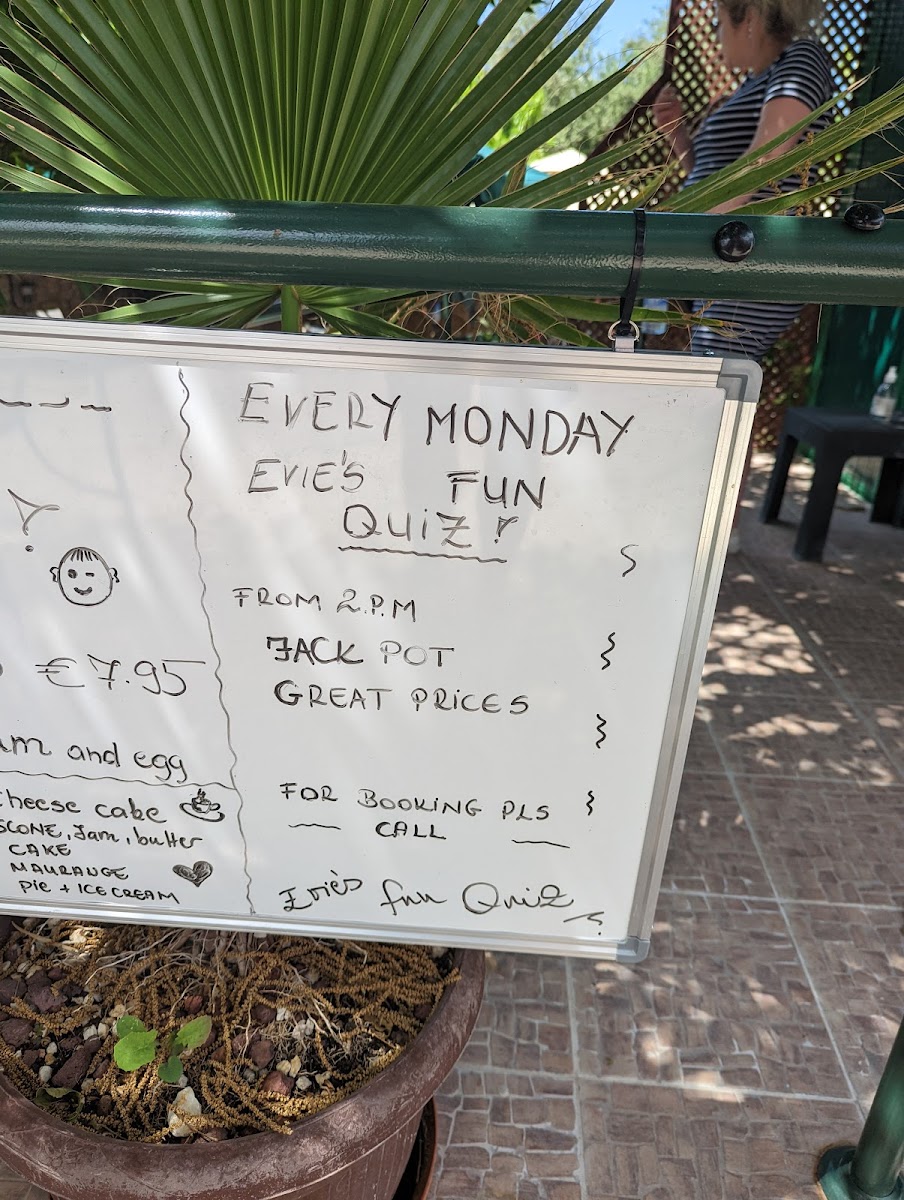 EVERY MONDAY
EVIE'S FUN
QUIZ!
FROM 2.P.M
JACK POT
GREAT PRICES
FOR BOOKING PLS
CALL
Evie's fun Quiz
€7.95
and egg
cheese cake
SCONE, Jam, butter
CAKE
MAURANGE
Pie + ICE CREAM